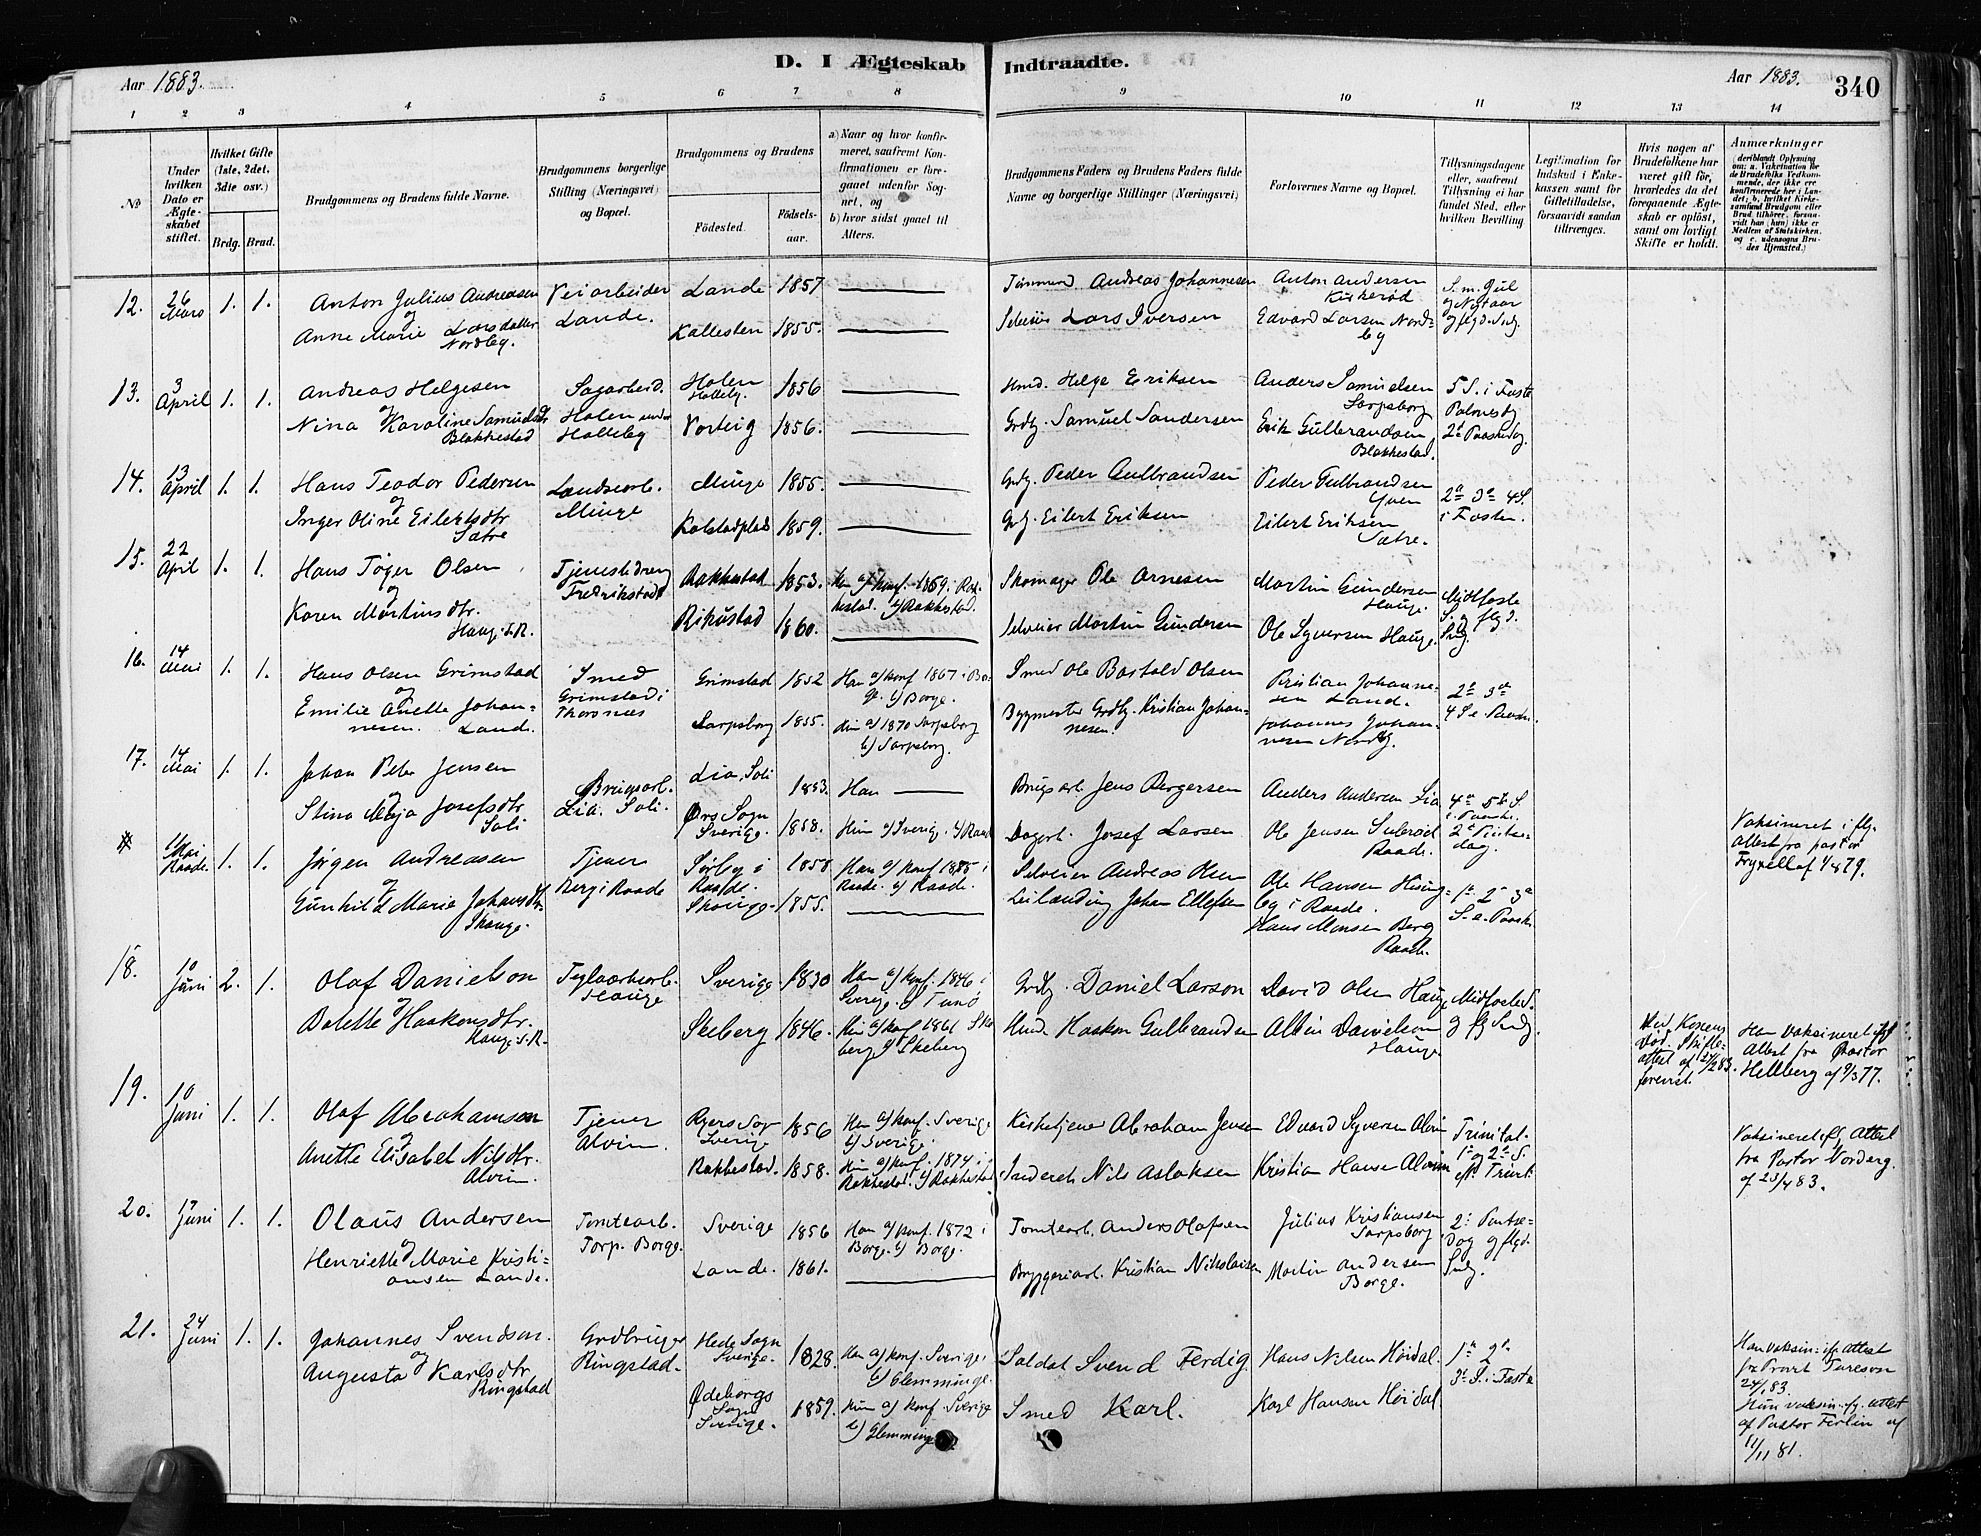 D. I Ægteskab Indtraadte.
Aar 1883.
Aar 1883.
340
1 2 3 4 5 6 7 8 9 10 11 12 13 14
No
Under hvilken Dato er Ægteskabet stiftet.
Hvilket Gifte (1ste, 2det, 3die osv.)
Brdg. Brud.
Brudgommens og Brudens fulde Navne.
Brudgommens borgerlige Stilling (Næringsvei) og Bopæl.
Brudgommens og Brudens
Fødested.
Fødselsaar.
a) Naar og hvor konfirmeret, saafremt Konfirmationen er foregaaet udenfor Sognet, og
b) hvor sidst gaaet til Alters.
Brudgommens Faders og Brudens Faders fulde Navne og borgerlige Stillinger (Næringsvei)
Forlovernes Navne og Bopæl.
Tillysningsdagene eller, saafremt Tillysning ei har fundet Sted, efter hvilken Bevilling
Legitimation for Indskud i Enkekassen samt for Giftetilladelse, forsaavidt saadan tiltrænges.
Hvis nogen af Brudefolkene har været gift før, hvorledes da det foregaaende Ægteskab er opløst, samt om lovligt Skifte er holdt.
Anmærkninger
(deriblandt Oplysning om: a. Vakcination for de Brudefolks Vedkommende, der ikke ere konfirmerede her i Landet; b. hvilket Kirkesamfund Brudgom eller Brud tilhører, forsaavidt han (hun) ikke er Medlem af Statskirken, og c. udensogns Brudes Hjemsted.)
12. 26 Mars 1. 1. Anton Julius Andreasen Veiarbeider Lande 1857 Andreas Johannesen Anton Andersen Kirkerød
og Lande.
Anne Marie Larsdatter Nordby. Kallesten 1855. Selveier Lars Iversen Edvard Larsen Nordby
13. 3 April 1. 1. Andreas Helgesen Sagarbeid. Holen Holleby. 1856 Hmd. Helge Eriksen Anders Samuelsen Sarpsborg 5 S. i Faste
og Holen under Holleby
Nina Karoline Samuelsdtr Blakkestad Varteig 1856. Grdbr. Samuel Sandersen Erik Gulbrandsen Blakkestad. Palmesdg 2d Paaskedag.
14. 13 April 1. 1. Hans Teodor Pedersen Landsearb. Minge Minge 1855. Peder Gulbrandsen Peder Gulbrandsen Yven 2n 3n 4 S.
og
Inger Oline Eilertsdtr Sætre Kolstadplads 1859. Eilert Eriksen Eilert Eriksen Sætre. i Fasten.
15. 22 April 1. 1. Hans Tøger Olsen Tjenestedreng Fredrikstad Rakkestad 1853. Han a) konf. 1869 i Rakkestad. b) Rakkestad. Skomager Ole Arnesen Martin Gundersen Hauge. Midfaste
og
Karen Martinsdtr. Haug. s. R. 1860. Selveier Martin Gundersen Ole Syversen Hauge. S. og flgd. Sndg.
16. 14 Mai 1. 1. Hans Olsen Grimstad Smed Grimstad i Thorsnæs Grimstad 1852 Han a) konf 1867 i Borge. b) Borge. Smed Ole Bastold Olsen Kristian Johannesen Lande. 2n 3de
og
Emilie Anette Johannesen. Lande. Sarpsborg 1855. Hun a) 1870 Sarpsborg b) Sarpsborg. Bygmester Grdbr. Kristian Johannesen. Johannes Johannesen Nordby. 4 S. e. Paaske.
17. 14 Mai 1. 1. Johan Peter Jensen Brugsarb. Lia. Soli. Lia, Soli 1853. Han Brugsarb Jens Børgersen Anders Andersen Lia 4de 5te S. e. Paaske.
og
Stina Maja Josefsdtr Soli Ørs Sogn Sverige. 1858. Hun a) Sverig. b) Raade Dagarb. Josef Larsen Ole Jensen Raade. 2n Pintsedag. Vaksineret iflg. Attest fra pastor Fryxell af 1/4 79.
Mai Raade. 1. 1. Jørgen Andreasen Tjener Berg i Raade Sørby i Raade. 1858. Raade. b) Raade. Selveier Andreas Olsen Ole Hansen i Raade. 1n 2n 3n
og
Gunhild Marie Johansdtr. Skauge. Skauge. 1855. Leilænding Johan Ellefsen Hans Monsen Berg Raade. S. e. Paaske
18. 10 Juni 2. 1. Olaf Danielson Teglværksarb. Hauge Sverige 1830 Han a) konf. 1846 i Sverige. b) Tunø Grdbr. Daniel Larson David Olsen Hauge Midfasteds.
og
Bolette Haakensdtr. Hauge s. R. Skeberg 1846. Hun a) konf 1861 Skeberg b) Skeberg Hmd. Haaken Gulbrandsen Albin Davidsen Hauge og flg Sndg. Med Konens Død. Skifteattest af 21/2 83. forevist. Han vaksineret iflg Attest fra Pastor Hellberg af 9/3 77.
19. 10 Juni 1. 1. Olaf Abrahamson Tjener Alvim. Ryers Sog Sverige 1856 Han a) konf. Sverige b) Sverige. Kirketjener Abraham Jensen Edvard Syversen Alvim Trinitat.
og
Anette Elisabet Nilsdtr. Alvim. Rakkestad. 1858. Hun a) konf. 1874 i Rakkestad. b) Rakkestad Inderst Nils Aslaksen Kristian Hansen Alvim 1n og 2n S. ef. Trinit. Vaksineret ifl. Attest fra Pastor Norderg. af 25/4 83.
20. 17 Juni 1. 1. Olaus Andersen Tomtearb. Torp. Borge. Sverige 1856 Han a) konf. 1872 i Borge. b) Borge. Tomtearb. Anders Olafsen Julius Kristiansen Sarpsborg 2n Pintsedag og flgd.
og
Henriette Marie Kristiansen Lande. Lande. 1861. Bryggeriarb. Kristian Nikolaisen Martin Andersen Borge. Sndg.
21. 24 Juni 1. 1. Johannes Svendson. Grdbruger Ringstad. Hede Sogn Sverige. 1828. Han a) konf. Sverige. b) Glemminge. Soldat Svend Ferdig Hans Nilsen Høidal. 1n 2n Han vaksin. ifl. Attest fra Provst Tureson 24/1 83.
og
Augusta Karlsdtr Ringstad Ødeborgs Sogn Sverige. 1859. Hun a) konf. Sverige b) Glemminge Smed Karl. Karl Hansen Høidal. 3n S. i Faste Hun vaksin. ifg. attest af Pastor Ferlin af 11/11 81.